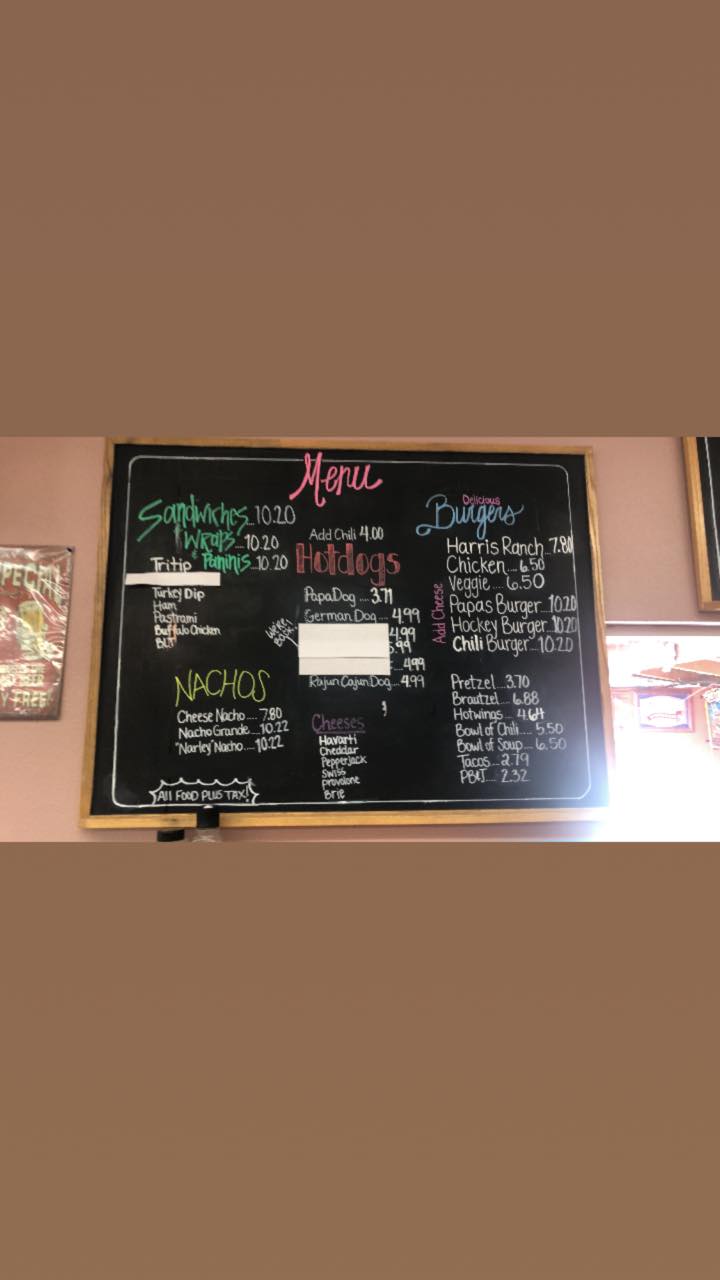 Menu
Sandwiches...10.20
Wraps...10.20
& Paninis...10.20
Tritip
Turkey Dip
Ham
Pastrami
Buffalo Chicken
BLT
NACHOS
Cheese Nacho....7.80
Nacho Grande....10.22
"Narley" Nacho...10.22
All FOOD PLUS TAX!
Add Chili 4.00
Hotdogs
PapaDog....3.71
German Dog....4.99
4.99
5.99
...4.99
Rajun Cajun Dog....4.99
Cheeses
Havarti
Cheddar
Pepperjack
Swiss
Provolone
Brie
Delicious
Burgers
Add Cheese
Harris Ranch...7.80
Chicken....6.50
Veggie....6.50
Papas Burger...10.20
Hockey Burger...10.20
Chili Burger...10.20
Pretzel...3.70
Brautzel....6.88
Hotwings....4.64
Bowl of Chili...5.50
Bowl of Soup...6.50
Tacos...2.79
PB&J....2.32